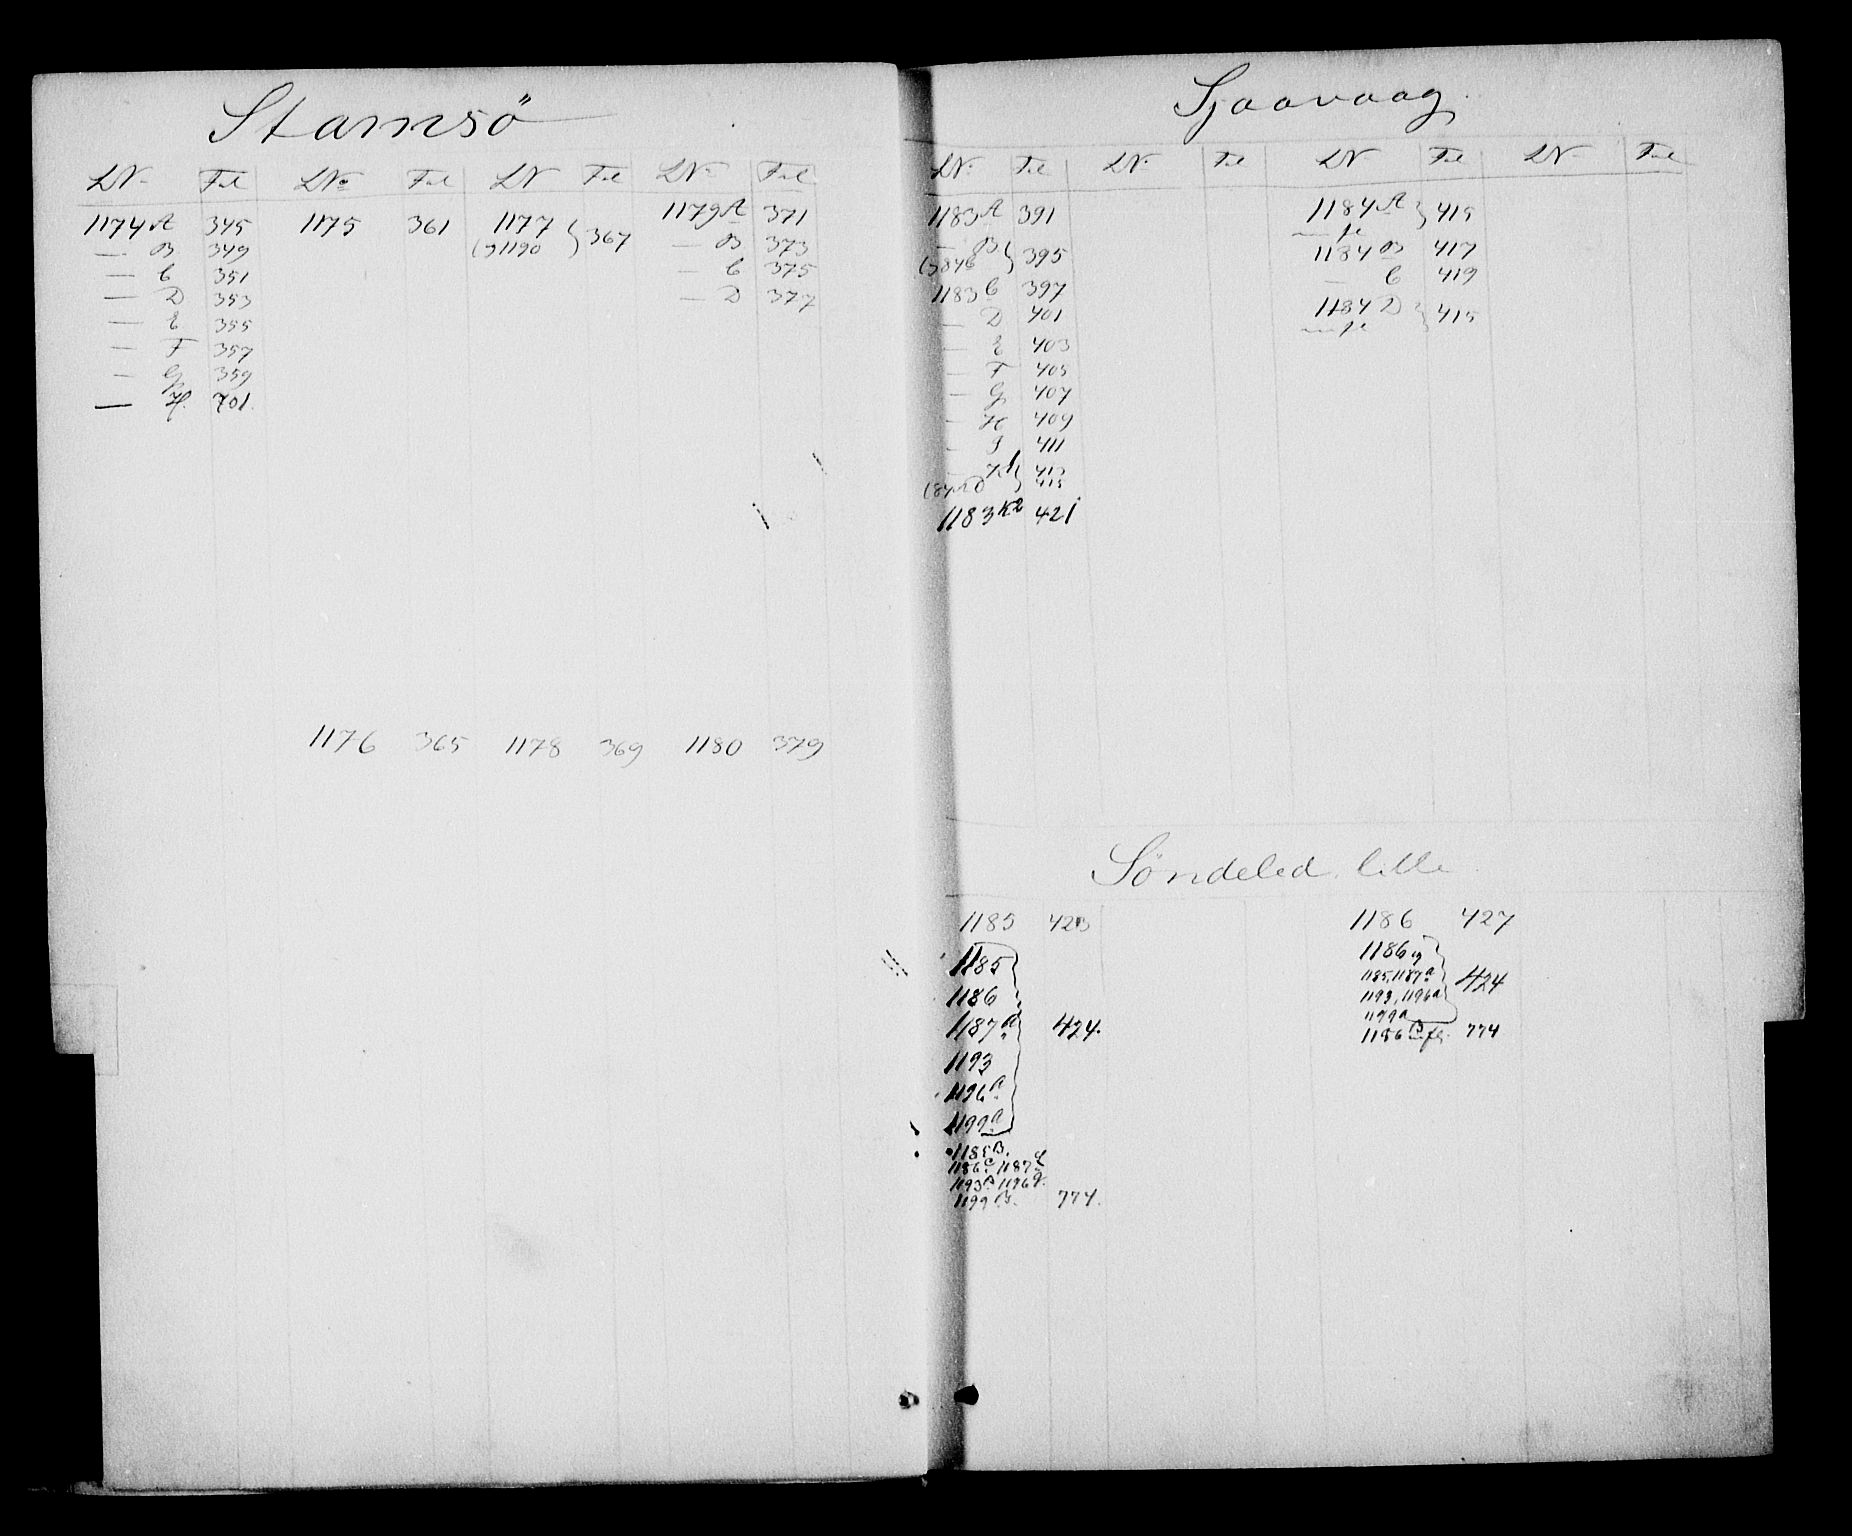 Stamsö
LN. Fol LNo Fol LN Fol LN. Fol
1174 A 345 1175 361 1177 1179 A 371
— B 349 (J 1190 } 367 — B 373
— C 351 — C 375
— D 353 — D 377
— E 355
— F 357
— G 359
— H. 701.
1176 365 1178 369 1180 379
Sjaavaag
LN. Fol LN. Fol LN Fol LN. Fol
1183 A 391 1184 A } 415
— B } 395 1184 B 417
— C 419
1183 C 397 1184 D } 415
— D 401
— E 403
— F 405
— G 407
— H 409
— I 411
413
415
1183 K2 421
Søndeled lille
1185 423 1186 427
1185
1186
1187 a 424.
1193
1196 a
1199 a
1185 B.
1186 C 1187
1193 B 1196
1199 B. 774.
1186 og
1185, 1187 a 424
1193, 1196 a
1199 a
1186 B 774